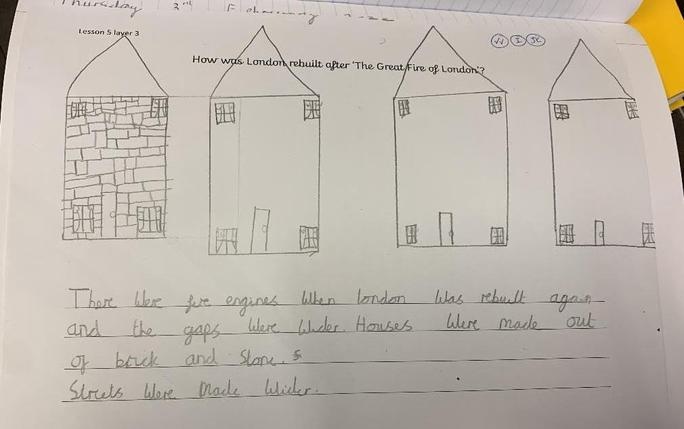 Thursday 3rd February
Lesson 5 layer 3
VV I SC
How was London rebuilt after 'The Great Fire of London'?
There Were fire engines When london Was rebuilt again
and the gaps Were Wider. Houses Were made out
of brick and Stone. s
Streets Were Made Wider.